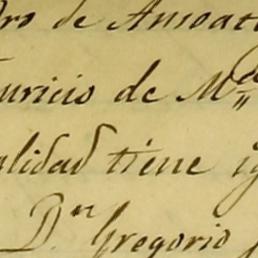 dro de Amoat
uricio de M
alidad tiene ig
Dⁿ Gregorio